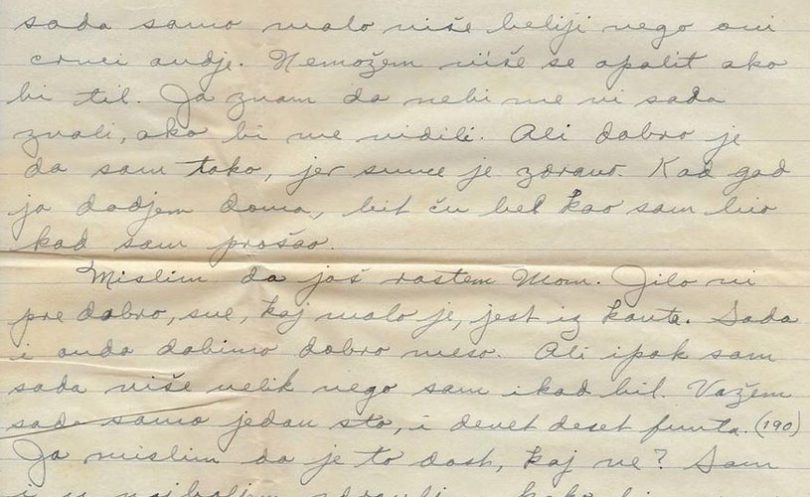 sada samo malo više beliji nego oni
crnci ondje. Nemožem više se opalit ako
bi til. Ja znam da nebi me vi sada
znali, ako bi me vidili. Ali dobro je
da sam tako, jer sunce je zdravo. Kad god
ja dodjem doma, bit ću bel kao sam bio
kad sam prošao.
Mislim da još rastem Mom. Jilo ni
pre dobro, sve, koj malo je, jest iz kanta. Sada
i onda dobimo dobro meso. Ali ipak sam
sada više velik nego sam ikad bil. Važem
sada samo jedan sto, i devet deset funta. (190)
Ja mislim da je to dost, kaj ne? Sam
i u najboljem zdravlj